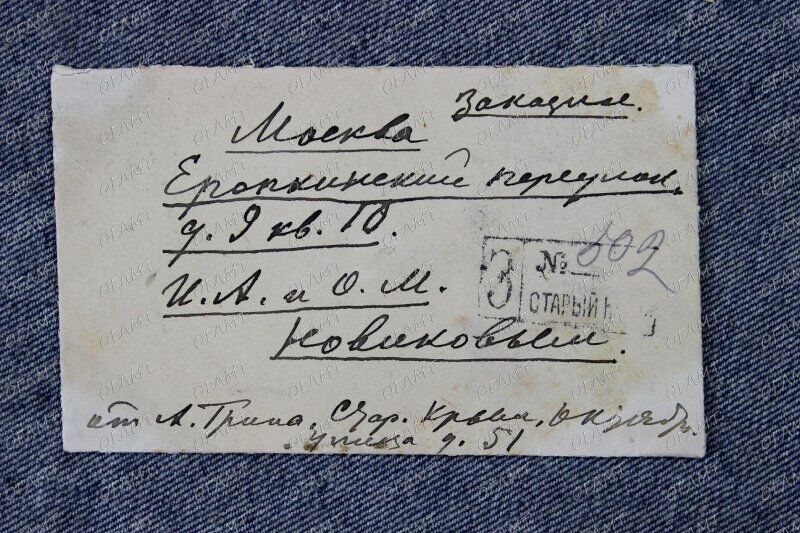 Заказное.
Москва
Еропкинский переулок,
д. 9 кв. 10.
И. А. и О. М.
Новиковым.
З № 602
СТАРЫЙ К
от А. Грина, Стар. Крым, Октябр.
улица д. 51